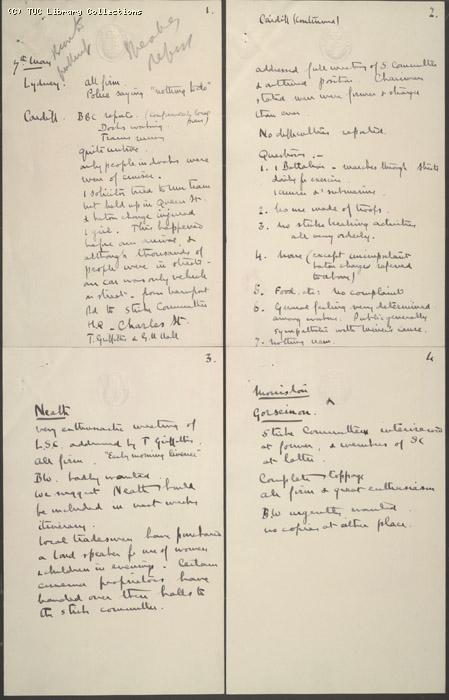 © TUC Library Collections
1.
7th May
Speakers
report
Lydney. All firm
Police saying "nothing to do"
Cardiff. BBC reports.
Docks working.
Trams running
quite untrue.
only people in docks were
men of cruiser.
1 solicitor tried to run tram
but held up in Queen St.
& baton charge injured
1 girl. This happened
before our arrival, &
although thousands of
people were in streets
our car was only vehicle
in street - from
Rd to Strike Committee
HQ - Charles St.
T. Griffiths & G.H. Hall
2.
Cardiff (continued)
addressed full meeting of S. Committee
& outlined position. Chairman
stated men were firmer & stronger
than ever.
No difficulties reported.
Questions :-
1. 1 Battalion - marches through streets
daily for exercise
1 cruiser & 1 submarine.
2. No use made of troops.
3. No strike breaking activities
all very orderly.
4. None (except unimportant
baton charge referred
to above)
5. Food. etc: no complaint
6. General feeling very determined
among workers. Public generally
sympathetic with miners cause.
7. Nothing new.
3.
Neath
very enthusiastic meeting of
L.S.C. addressed by T Griffiths.
All firm. "Early morning licence"
BW. badly wanted.
We suggest Neath should
be included in next weeks
itinerary.
Local tradesmen have purchased
a loud speaker for use of women
& children in evenings. Certain
cinema proprietors have
handed over their halls to
the strike committee.
4
Morriston
Gorseinon.
Strike Committee interviewed
at former, & members of SC
at latter.
Complete stoppage
all firm & great enthusiasm
BW urgently wanted.
no copies at either place.